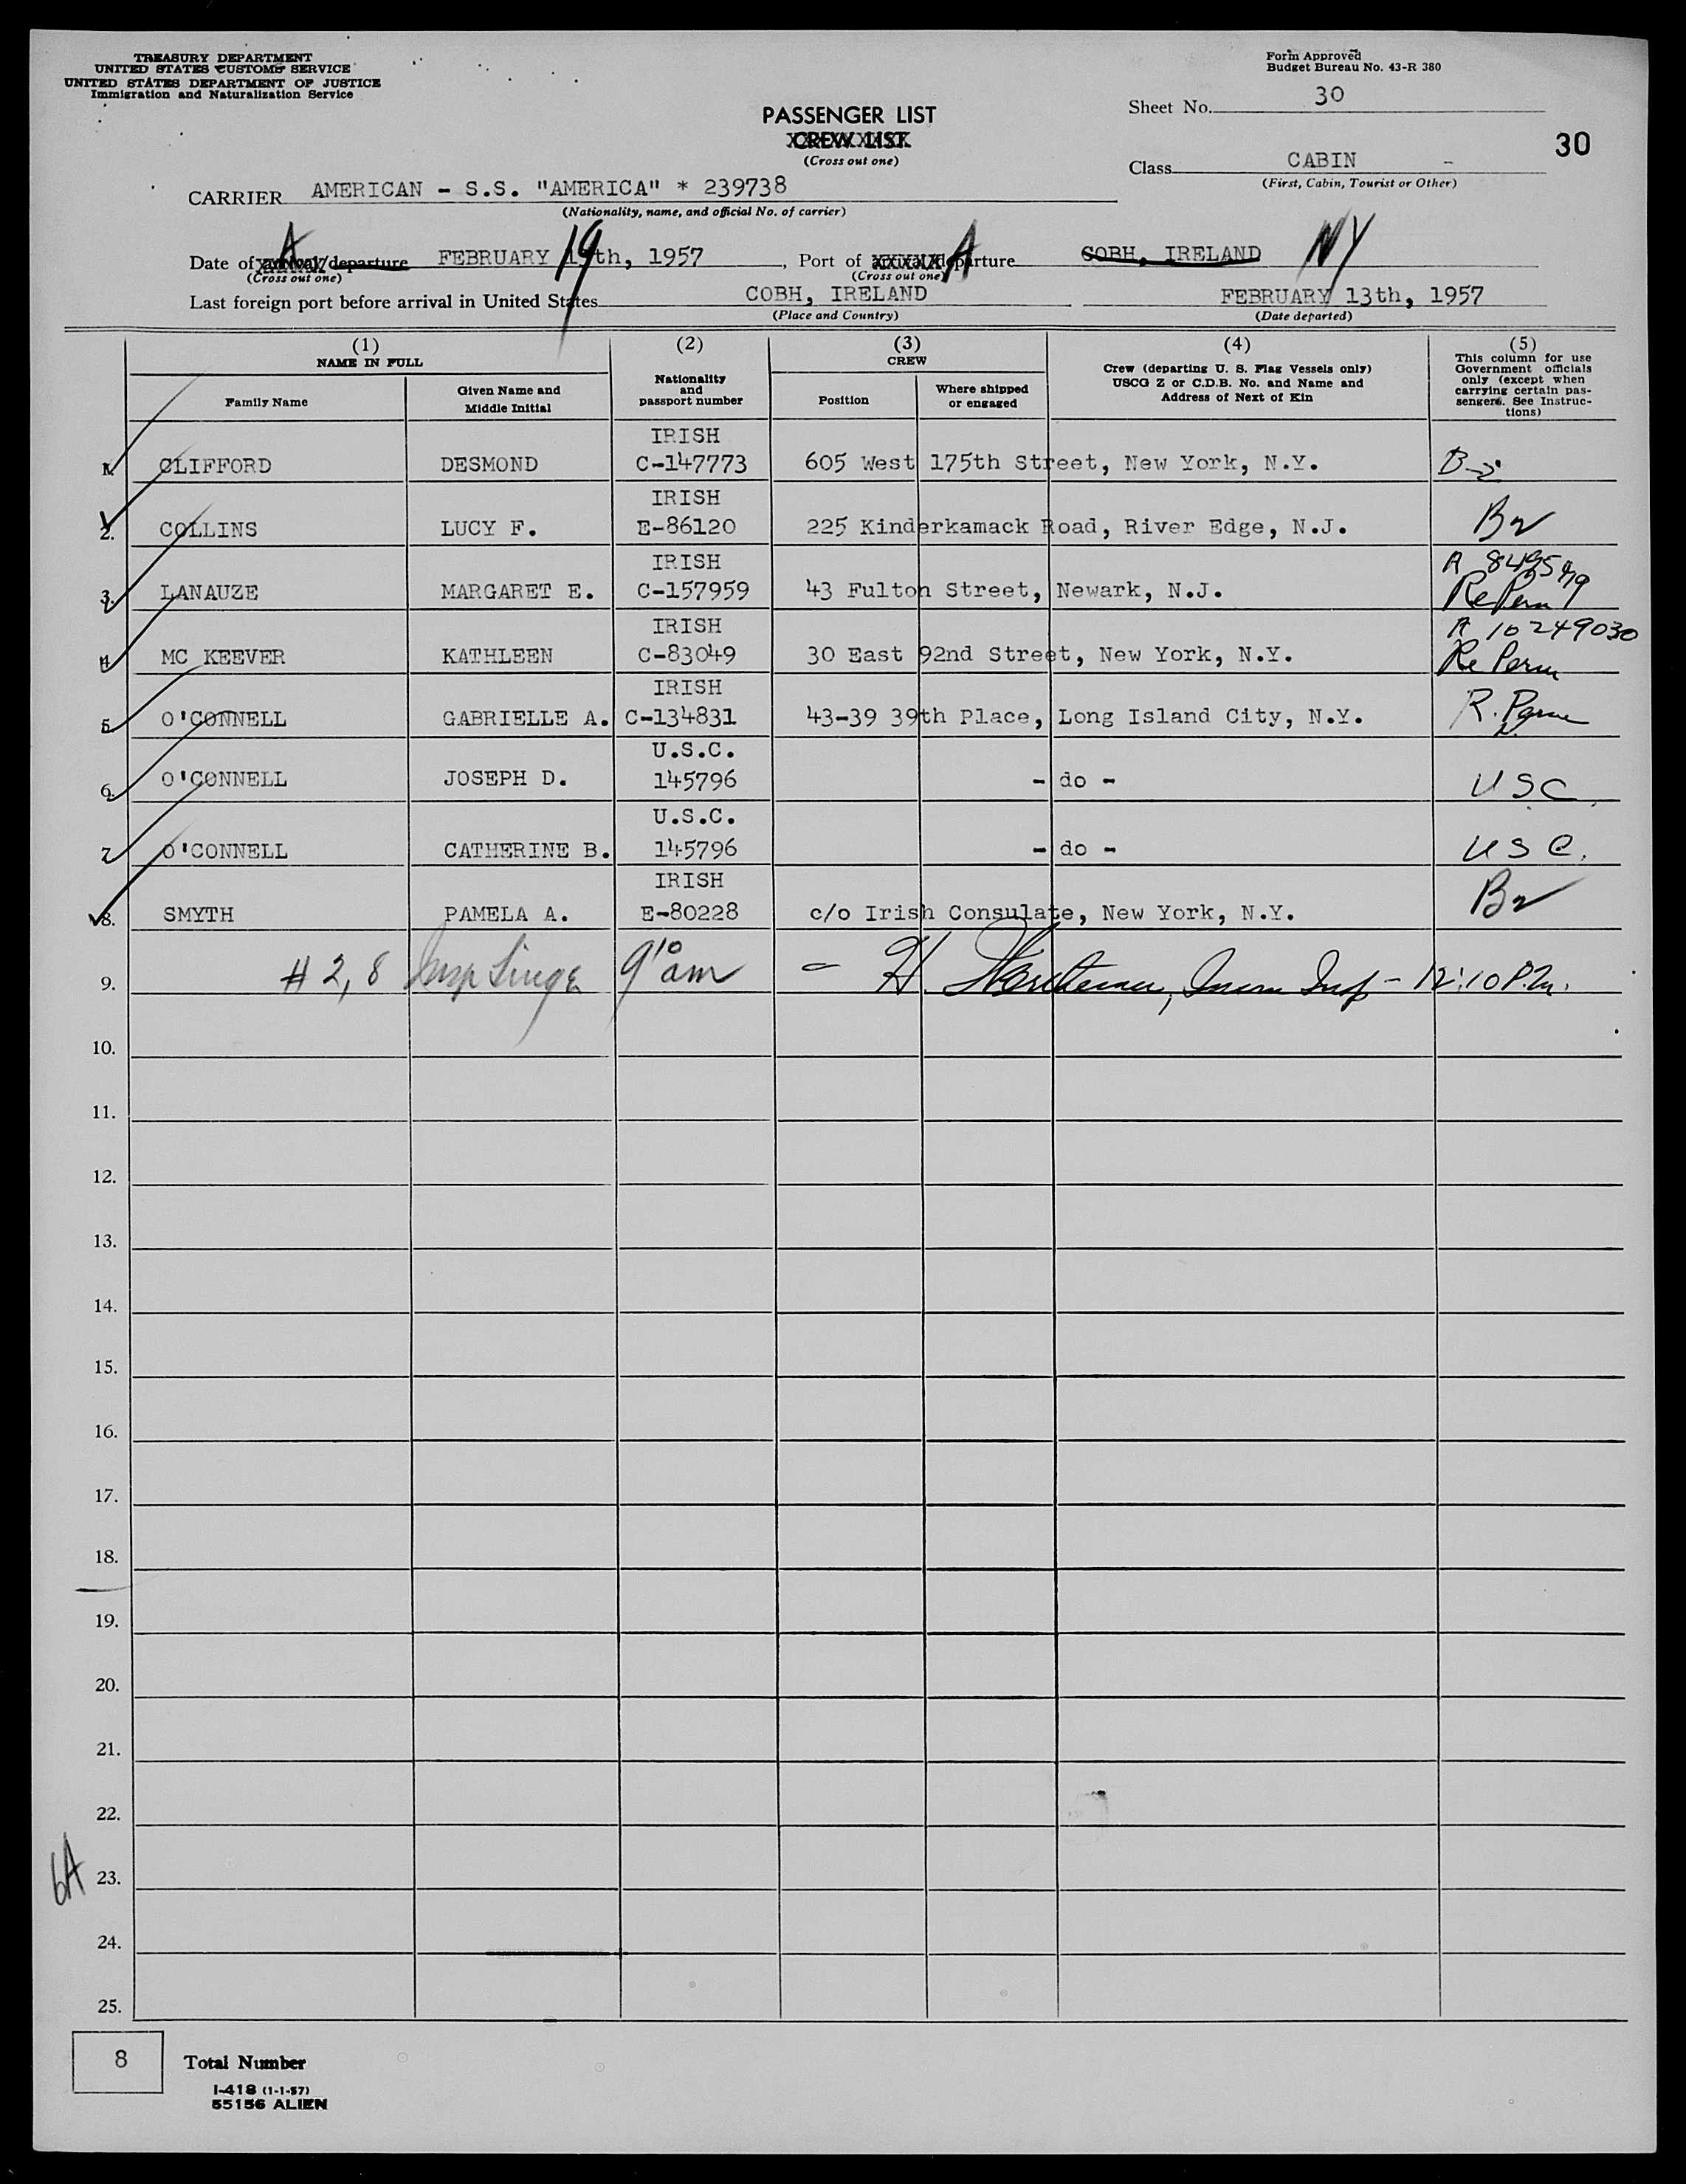 TREASURY DEPARTMENT
UNITED STATES CUSTOMS SERVICE
UNITED STATES DEPARTMENT OF JUSTICE
Immigration and Naturalization Service
Form Approved
Budget Bureau No. 43-R 380
Sheet No. 30
30
PASSENGER LIST
CREW LIST
(Cross out one)
Class CABIN -
(First, Cabin, Tourist or Other)
CARRIER AMERICAN - S.S. "AMERICA" * 239738
(Nationality, name, and official No. of carrier)
Date of arrival/departure A FEBRUARY 19th, 1957, Port of arrival/departure A COBH, IRELAND NY
(Cross out one) (Cross out one)
Last foreign port before arrival in United States COBH, IRELAND FEBRUARY 13th, 1957
(Place and Country) (Date departed)
(1) NAME IN FULL
Family Name
Given Name and Middle Initial
(2) Nationality and passport number
(3) CREW
Position
Where shipped or engaged
(4) Crew (departing U. S. Flag Vessels only) USCG Z or C.D.B. No. and Name and Address of Next of Kin
(5) This column for use Government officials only (except when carrying certain passengers. See Instructions)
IRISH
1. CLIFFORD DESMOND C-147773 605 West 175th Street, New York, N.Y. B-2
IRISH
2. COLLINS LUCY F. E-86120 225 Kinderkamack Road, River Edge, N.J. B2
IRISH
3. LANAUZE MARGARET E. C-157959 43 Fulton Street, Newark, N.J. Re Perm
IRISH A 10249030
4. MC KEEVER KATHLEEN C-83049 30 East 92nd Street, New York, N.Y. Re Perm
IRISH
5. O'CONNELL GABRIELLE A. C-134831 43-39 39th Place, Long Island City, N.Y. R. Perm
U.S.C.
6. O'CONNELL JOSEPH D. 145796 - do - USC
U.S.C.
7. O'CONNELL CATHERINE B. 145796 - do - USC.
IRISH
8. SMYTH PAMELA A. E-80228 c/o Irish Consulate, New York, N.Y. B2
9. # 2, 8 Insp 9 10 am - H. Imm Insp - 12:10 P.M.
10.
11.
12.
13.
14.
15.
16.
17.
18.
19.
20.
21.
22.
23.
6A
24.
25.
8 Total Number
I-418 (1-1-57)
55156 ALIEN